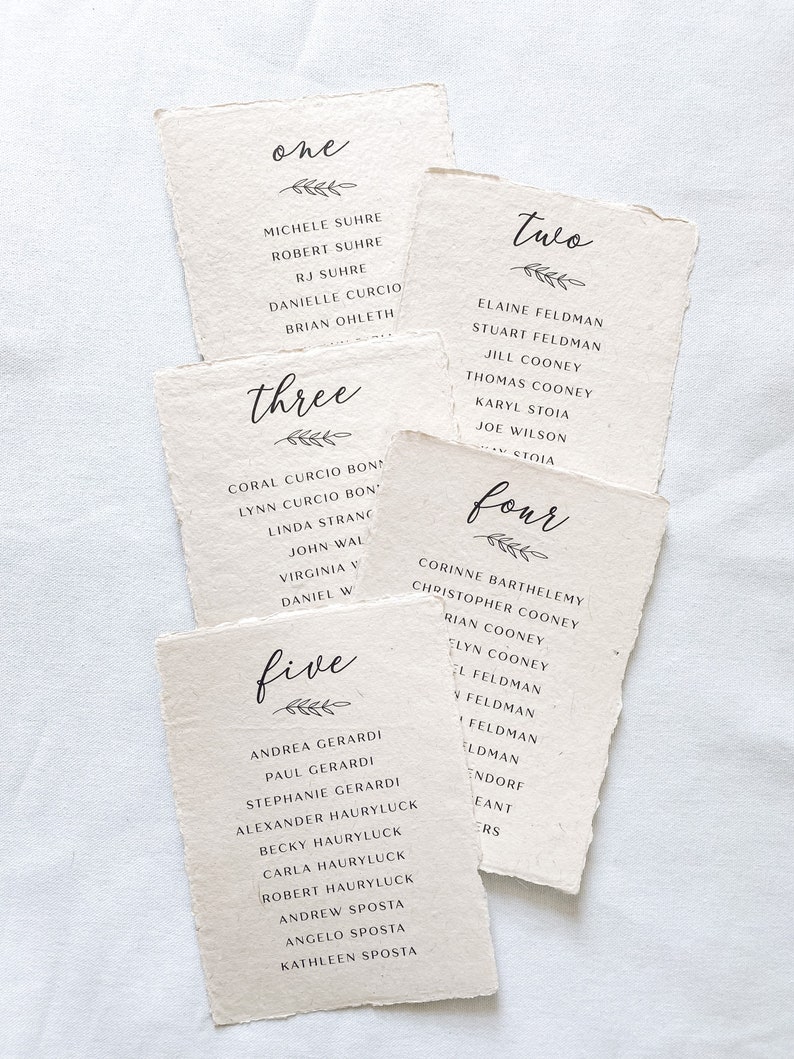 one
MICHELE SUHRE
ROBERT SUHRE
RJ SUHRE
DANIELLE CURCIO
BRIAN OHLETH
two
ELAINE FELDMAN
STUART FELDMAN
JILL COONEY
THOMAS COONEY
KARYL STOIA
JOE WILSON
STOIA
three
CORAL CURCIO BONN
LYNN CURCIO BONN
LINDA STRANG
JOHN WAL
VIRGINIA W
DANIEL W
four
CORINNE BARTHELEMY
CHRISTOPHER COONEY
RIAN COONEY
ELYN COONEY
EL FELDMAN
N FELDMAN
FELDMAN
ELDMAN
ENDORF
EANT
ERS
five
ANDREA GERARDI
PAUL GERARDI
STEPHANIE GERARDI
ALEXANDER HAURYLUCK
BECKY HAURYLUCK
CARLA HAURYLUCK
ROBERT HAURYLUCK
ANDREW SPOSTA
ANGELO SPOSTA
KATHLEEN SPOSTA